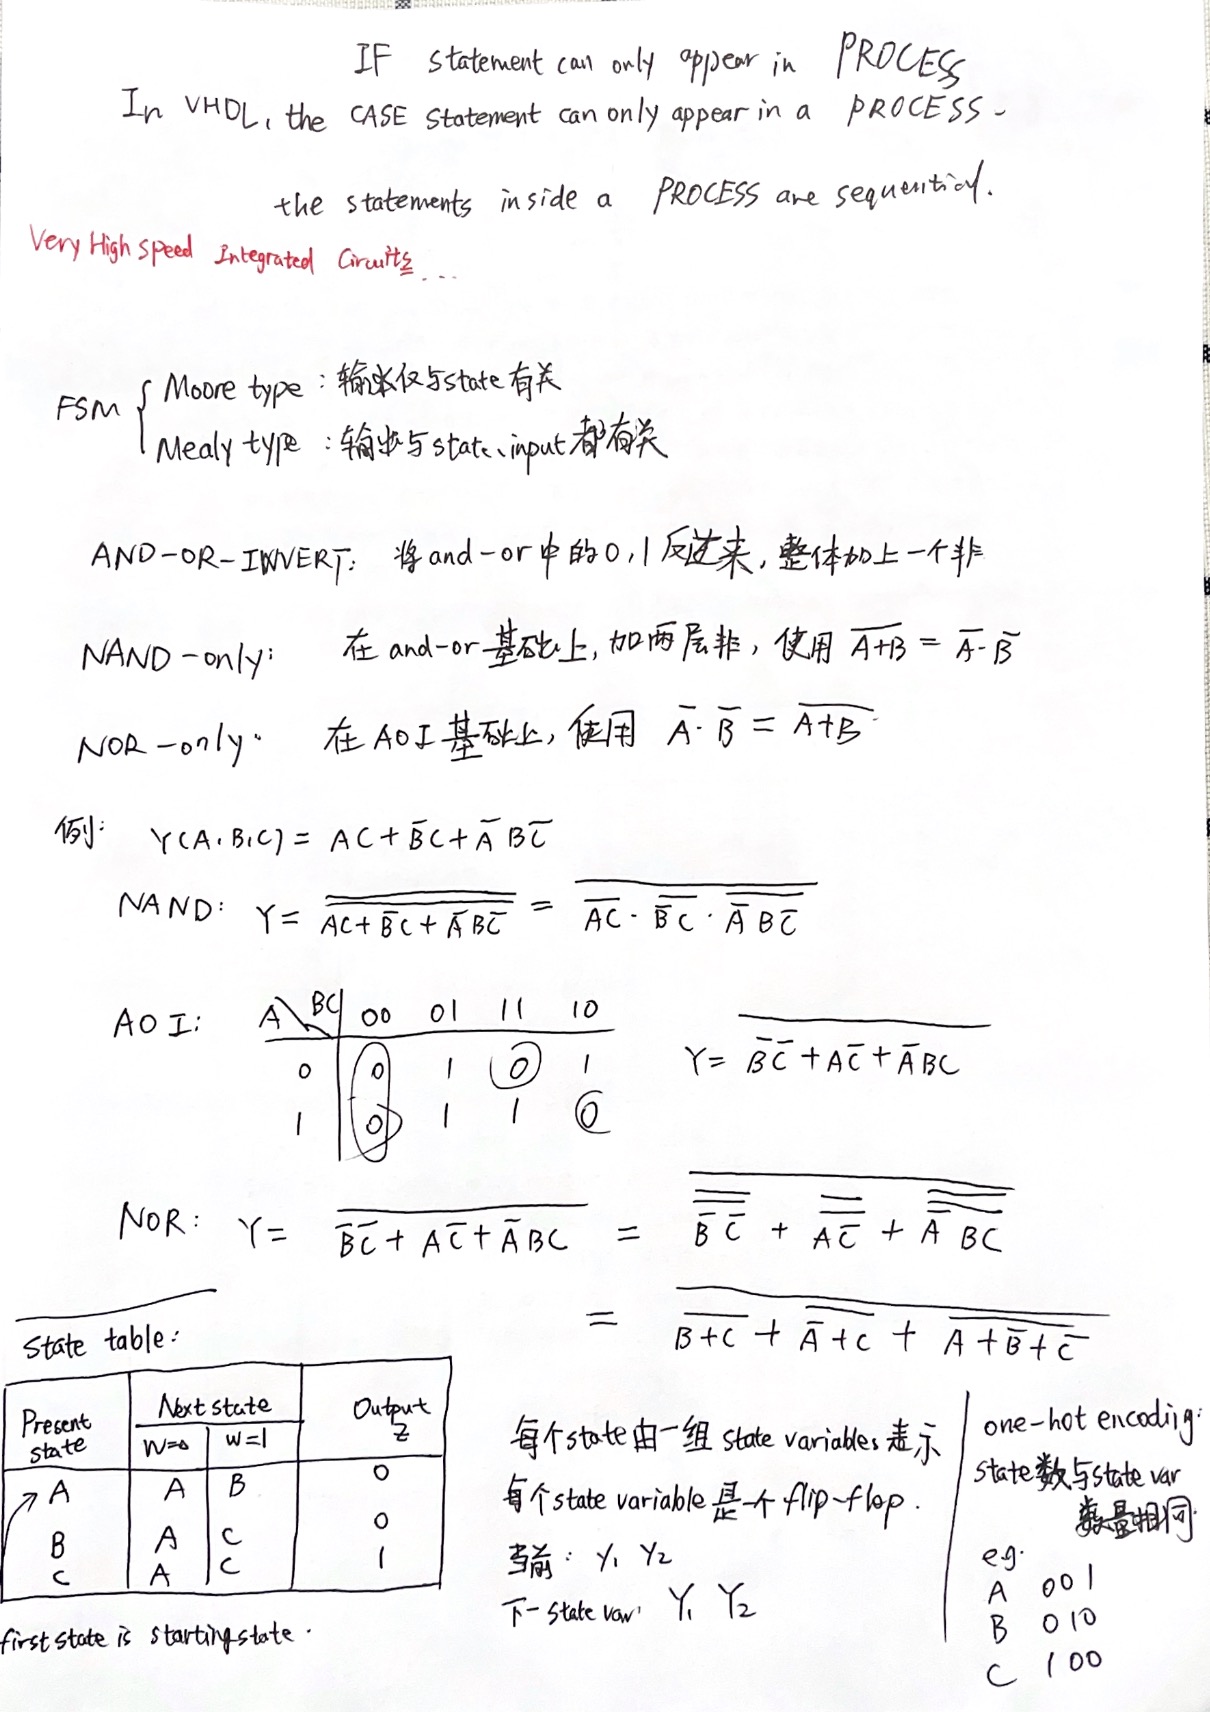 IF statement can only appear in PROCESS
In VHDL, the CASE statement can only appear in a PROCESS.
the statements inside a PROCESS are sequential.
Very High speed Integrated Circuits ...
FSM { Moore type : 输出仅与state有关
Mealy type : 输出与state、input都有关
AND-OR-INVERT: 将and-or中的0,1反过来, 整体加上一个非
NAND-only: 在and-or基础上, 加两层非, 使用 A̅+̅B̅ = A̅·B̅
NOR-only: 在AOI基础上, 使用 A̅·B̅ = A̅+̅B̅
例: Y(A,B,C) = AC + B̅C + A̅BC̅
NAND: Y = \overline{\overline{AC+\bar{B}C+\bar{A}B\bar{C}}} = \overline{\overline{AC}·\overline{\bar{B}C}·\overline{\bar{A}B\bar{C}}}
AOI: A\BC 00 01 11 10
0 0 1 0 1
1 0 1 1 0
Y = \overline{\bar{B}\bar{C}+A\bar{C}+\bar{A}BC}
NOR: Y = \overline{\bar{B}\bar{C}+A\bar{C}+\bar{A}BC} = \overline{\overline{\overline{\bar{B}\bar{C}}}+\overline{\overline{A\bar{C}}}+\overline{\overline{\bar{A}BC}}}
= \overline{\overline{B+C}+\overline{\bar{A}+C}+\overline{A+\bar{B}+\bar{C}}}
State table:
Present state Next state Output z
w=0 w=1
A A B 0
B A C 0
C A C 1
first state is starting state.
每个state由一组state variables表示
每个state variable是一个flip-flop.
当前: y₁ y₂
下一state var: Y₁ Y₂
one-hot encoding:
state数与state var
数量相同
eg.
A 001
B 010
C 100